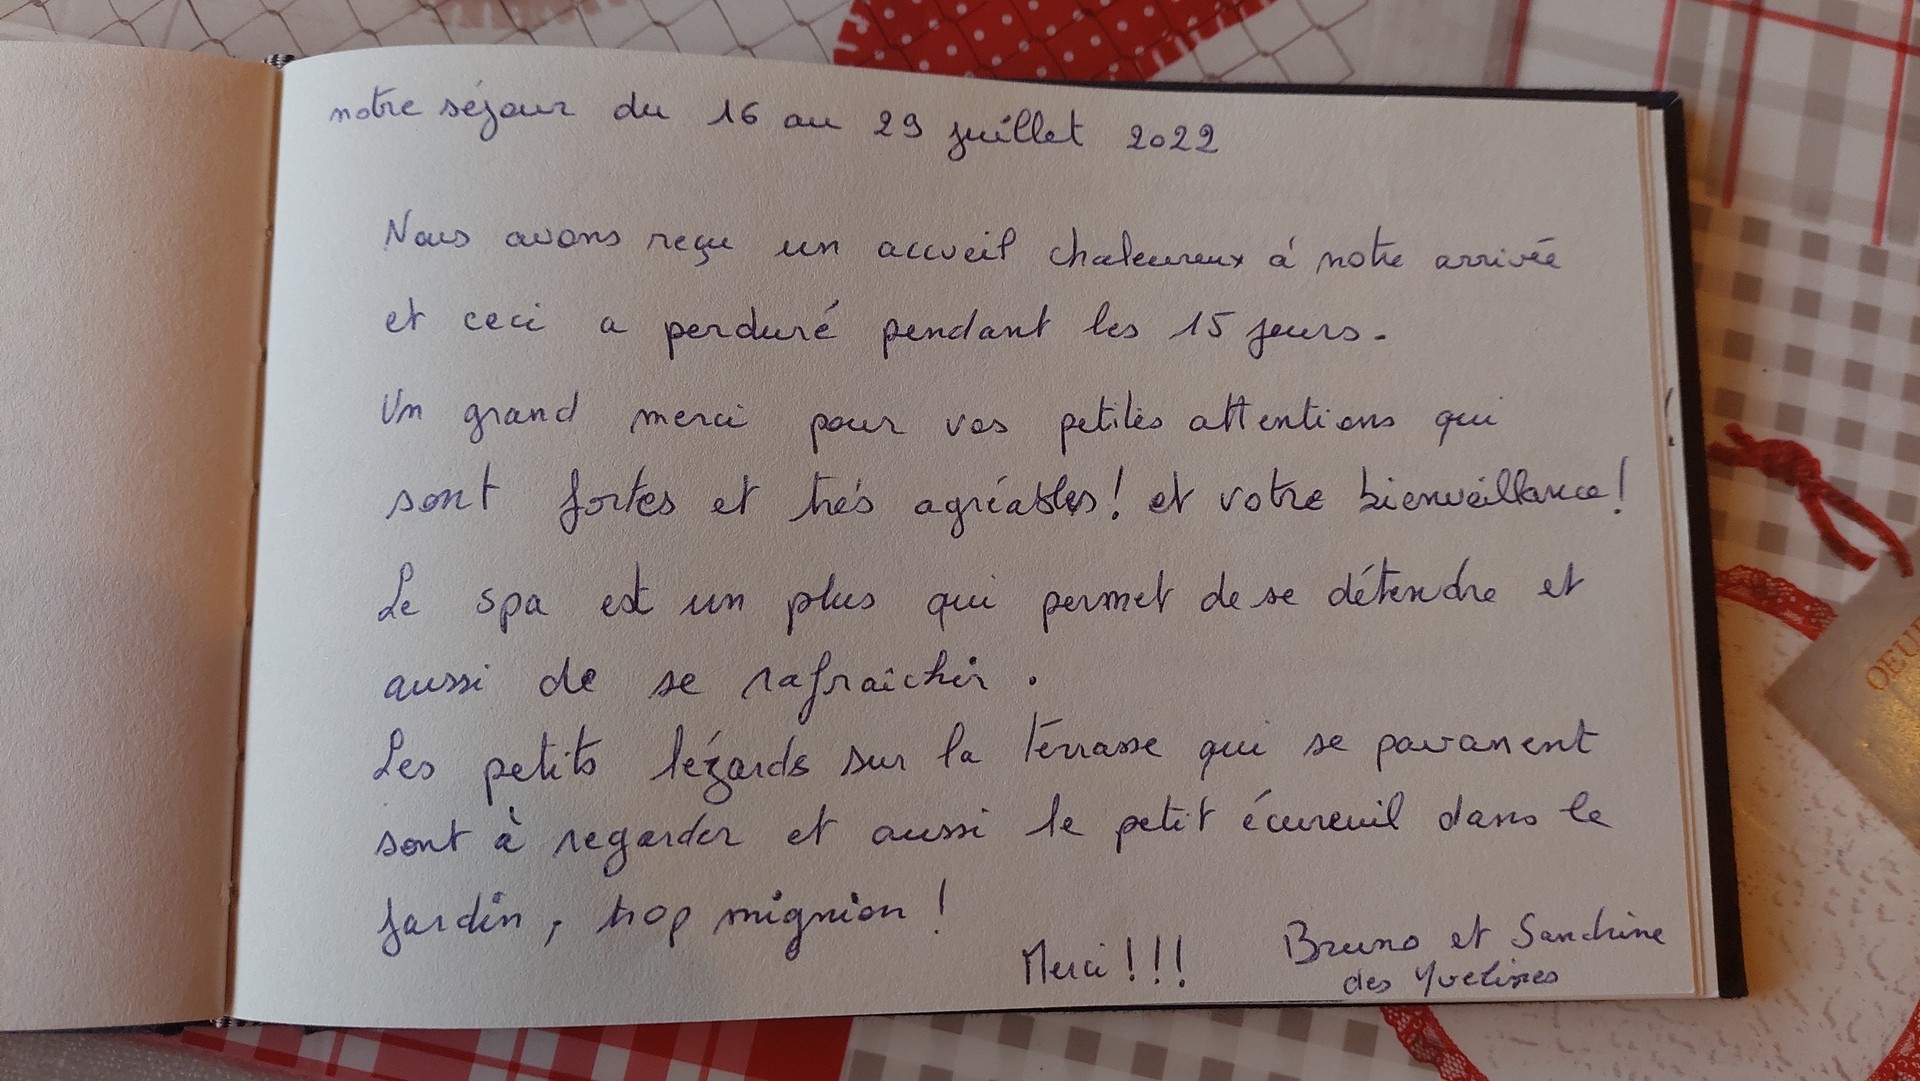 notre séjour du 16 au 29 juillet 2022
Nous avons reçu un accueil chaleureux à notre arrivée
et ceci a perduré pendant les 15 jours.
Un grand merci pour vos petites attentions qui
sont fortes et très agréables! et votre bienveillance!
Le spa est un plus qui permet de se détendre et
aussi de se rafraîchir.
Les petits lézards sur la terrasse qui se pavanent
sont à regarder et aussi le petit écureuil dans le
jardin, trop mignion!
Merci!!! Bruno et Sandrine
des Yvelines